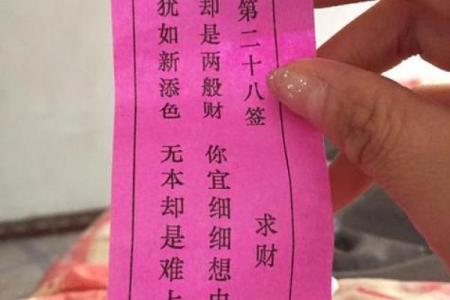 第二十八签 求财
却是两般财 你宜细细想
犹如新添色 无本却是难上